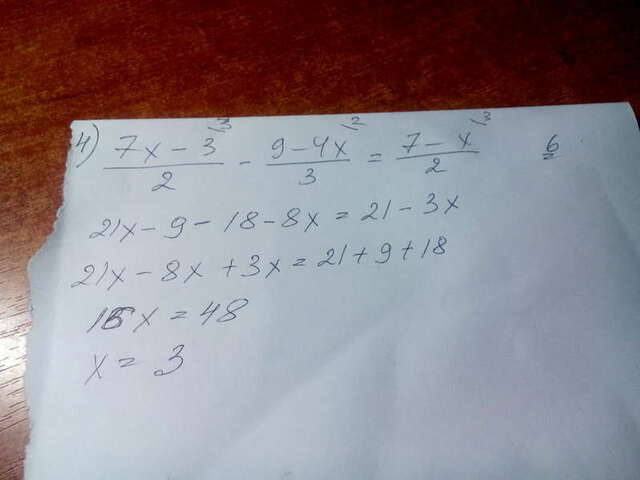 4) (7x - 3)/2 \3 - (9 - 4x)/3 \2 = (7 - x)/2 \3 6
21x - 9 - 18 - 8x = 21 - 3x
21x - 8x + 3x = 21 + 9 + 18
16x = 48
x = 3